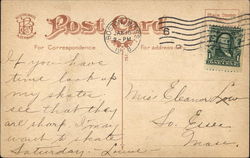 Post Card
For Correspondence
For address
2-PM
If you have
time look up
my skates
see that they
are sharp. I may
want to skate
Saturday.
Miss Eleanor
So. Essex
Mass.